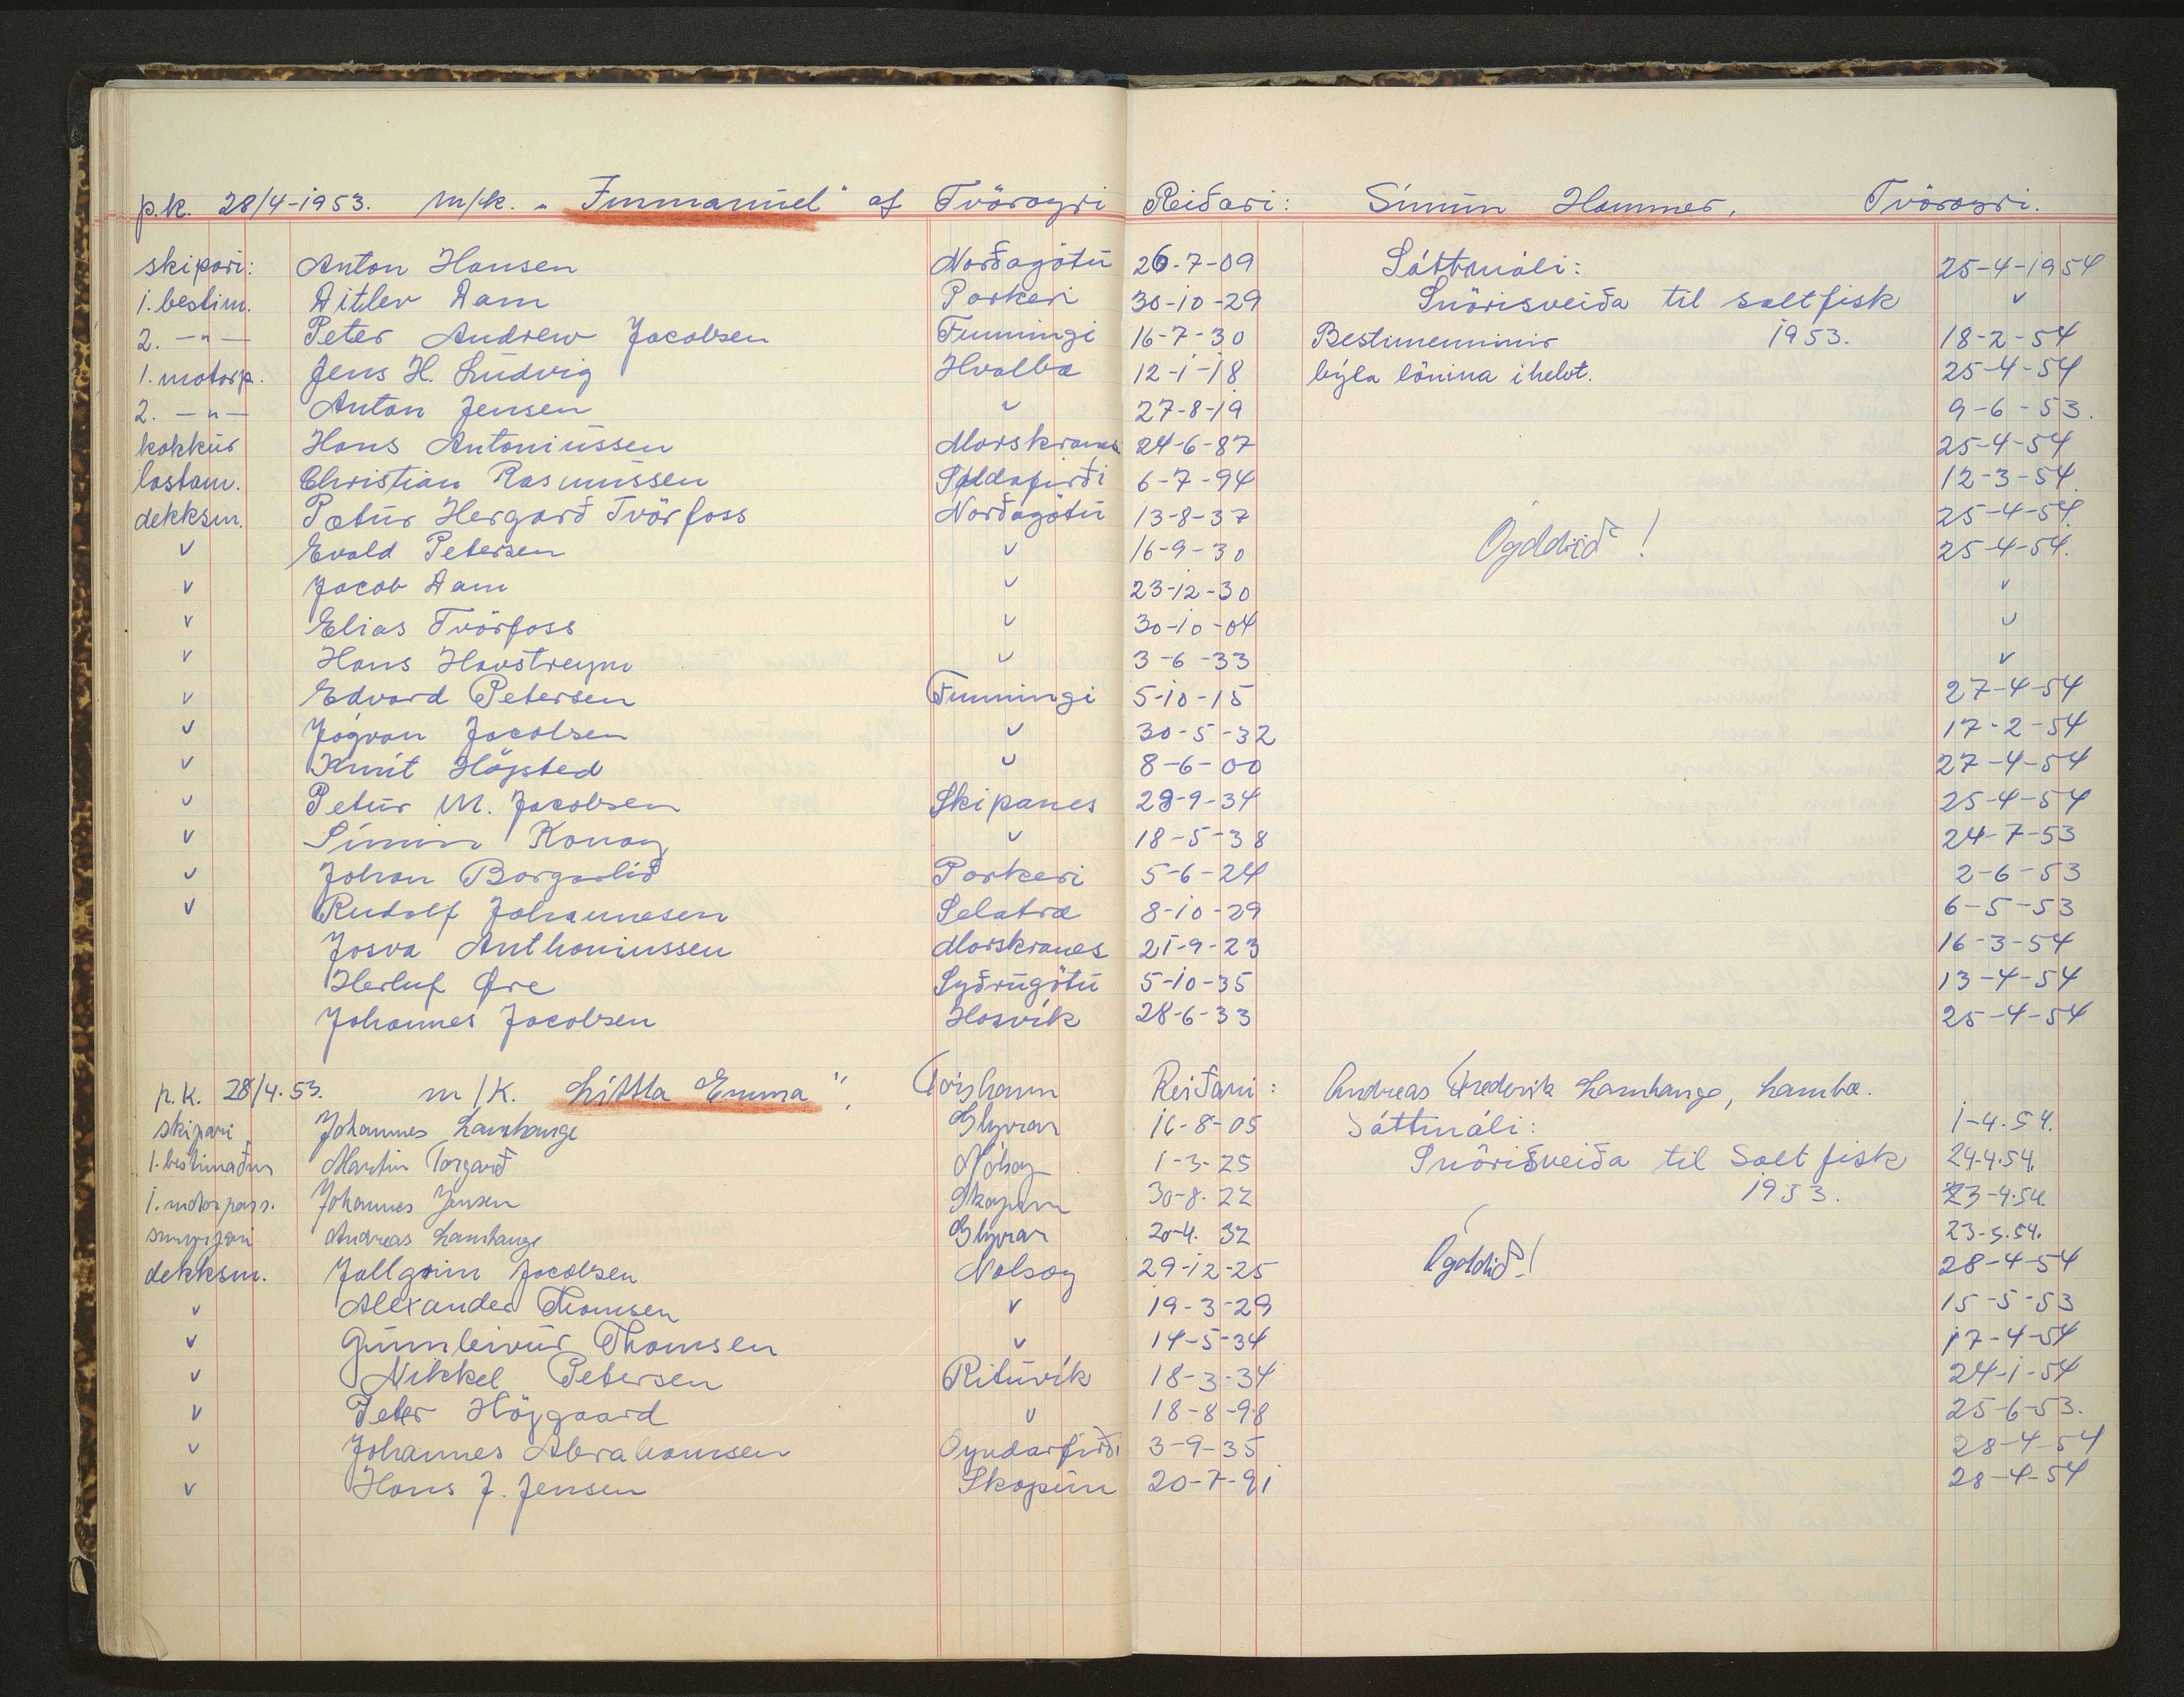 p.k. 28/4-1953. m/k. „Immanúel“ af Tvöroyri Reiðari: Símun Hammer, Tvöroyri.
skipari: Anton Hansen Norðagötu 26-7-09 Sáttmáli: 25-4-1954
1. bestim. Ditlev Dam Porkeri 30-10-29 Snörisveiða til saltfisk v
2. -"- Peter Andrew Jacobsen Funningi 16-7-30 Bestimenninir 1953. 18-2-54
1. motorp. Jens H. Ludvig Hvalba 12-1-18 býla lönina i helvt. 25-4-54
2. -"- Anton Jensen v 27-8-19 9-6-53.
kokkur Hans Antoniussen Morskranes 24-6-87 25-4-54
lastam. Christian Rasmussen Saldafirði 6-7-94 12-3-54.
dekksm. Pætur Hergarð Tvörfoss Norðagötu 13-8-37 25-4-54.
v Evald Petersen v 16-9-30 Ógoldið! 25-4-54.
v Jacob Dam v 23-12-30 v
v Elias Tvörfoss v 30-10-04 v
v Hans Havstreym v 3-6-33 v
v Edvard Petersen Funningi 5-10-15 27-4-54
v Jógvan Jacobsen v 30-5-32 17-2-54
v Knút Höjsted v 8-6-00 27-4-54
v Petur M. Jacobsen Skipanes 29-9-34 25-4-54
v Símun Konoy v 18-5-38 24-7-53
v Johan Borgarlið Porkeri 5-6-24 2-6-53
v Rudolf Johannesen Selatræ 8-10-29 6-5-53
Josva Anthoniussen Morskranes 21-9-23 16-3-54
Herluf Øre Syðrugötu 5-10-35 13-4-54
Johannes Jacobsen Hosvík 28-6-33 25-4-54
p.k. 28/4.53. m/K. Littla Emma", Tórshavn Reiðari: Andreas Frederik Lamhauge, Lamba.
skipari Johannes Lamhauge Glyvrar 16-8-05 Sáttmáli: 1-4.54.
1. bestimaður Martin Torgarð Nólsoy 1-3-25 Snörisveiða til Saltfisk 24.4.54.
1. motorpass. Johannes Jensen Skopun 30-8.22 1953. 23-4.54.
smyrjari Andreas Lamhauge Glyvrar 20-4.32 23-5.54.
dekksm. Jallgrim Jacobsen Nolsoy 29-12-25 Ógoldið! 28-4-54
v Alexander Thomsen v 19-3-29 15-5-53
v Gunnleivur Thomsen v 14-5-34 17-4-54
v Nikkel Petersen Rituvík 18-3-34 24-1-54
v Peter Höjgaard v 18-8-98 25-6-53.
v Johannes Abrahamsen Oyndarfirði 3-9-35 28-4-54
v Hans J. Jensen Skopun 20-7-91 28-4-54